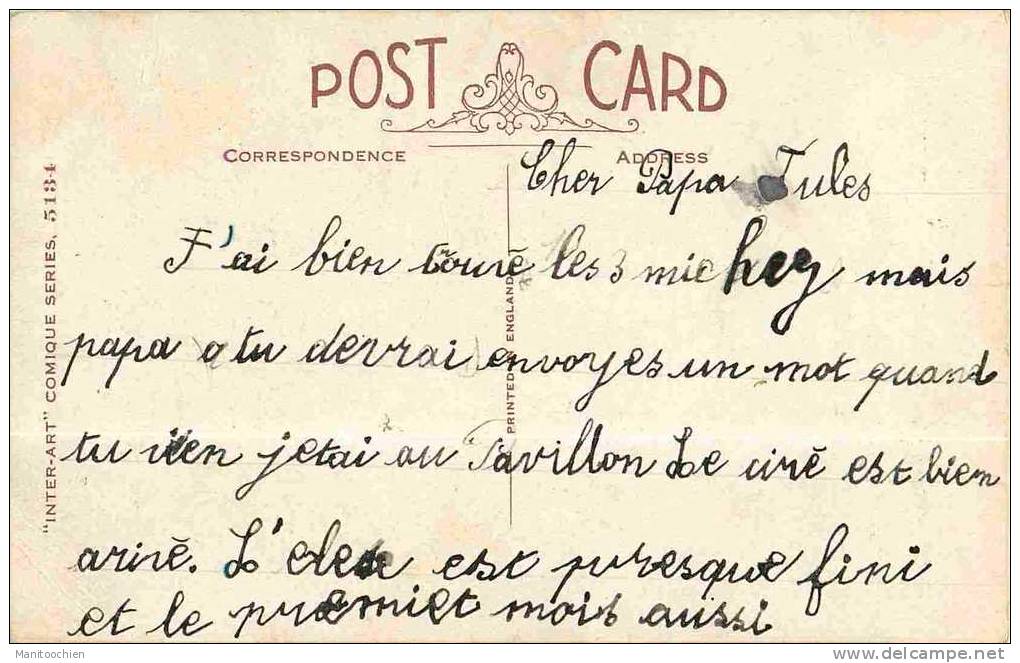 POST CARD
CORRESPONDENCE
ADDRESS
"INTER-ART" COMIQUE SERIES, 5184
PRINTED IN ENGLAND
Cher Papa Jules
J'ai bien les 3 michey mais
papa tu devrai envoyes un mot quand
tu jetai au Pavillon Le ciré est bien
arivé. L' est presque fini
et le premiet mois aussi
Mantoochien
delcampe.net